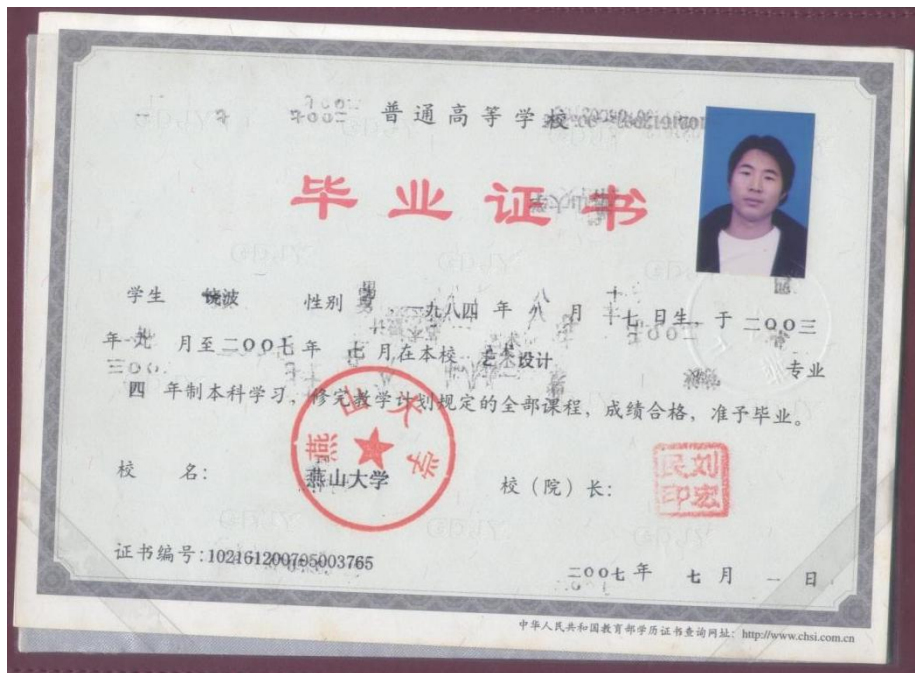 普通高等学校
毕业证书
学生 饶波 性别 男 一九八四 年 八 月 十七 日生，于 二００三
年 九 月至 二００七 年 七 月在本校 艺术设计 专业
四 年制本科学习，修完教学计划规定的全部课程，成绩合格，准予毕业。
燕山大学
校 名： 燕山大学 校（院）长： 刘宏民印
证书编号：102161200705003765
二００七 年 七 月 一 日
中华人民共和国教育部学历证书查询网址：http://www.chsi.com.cn